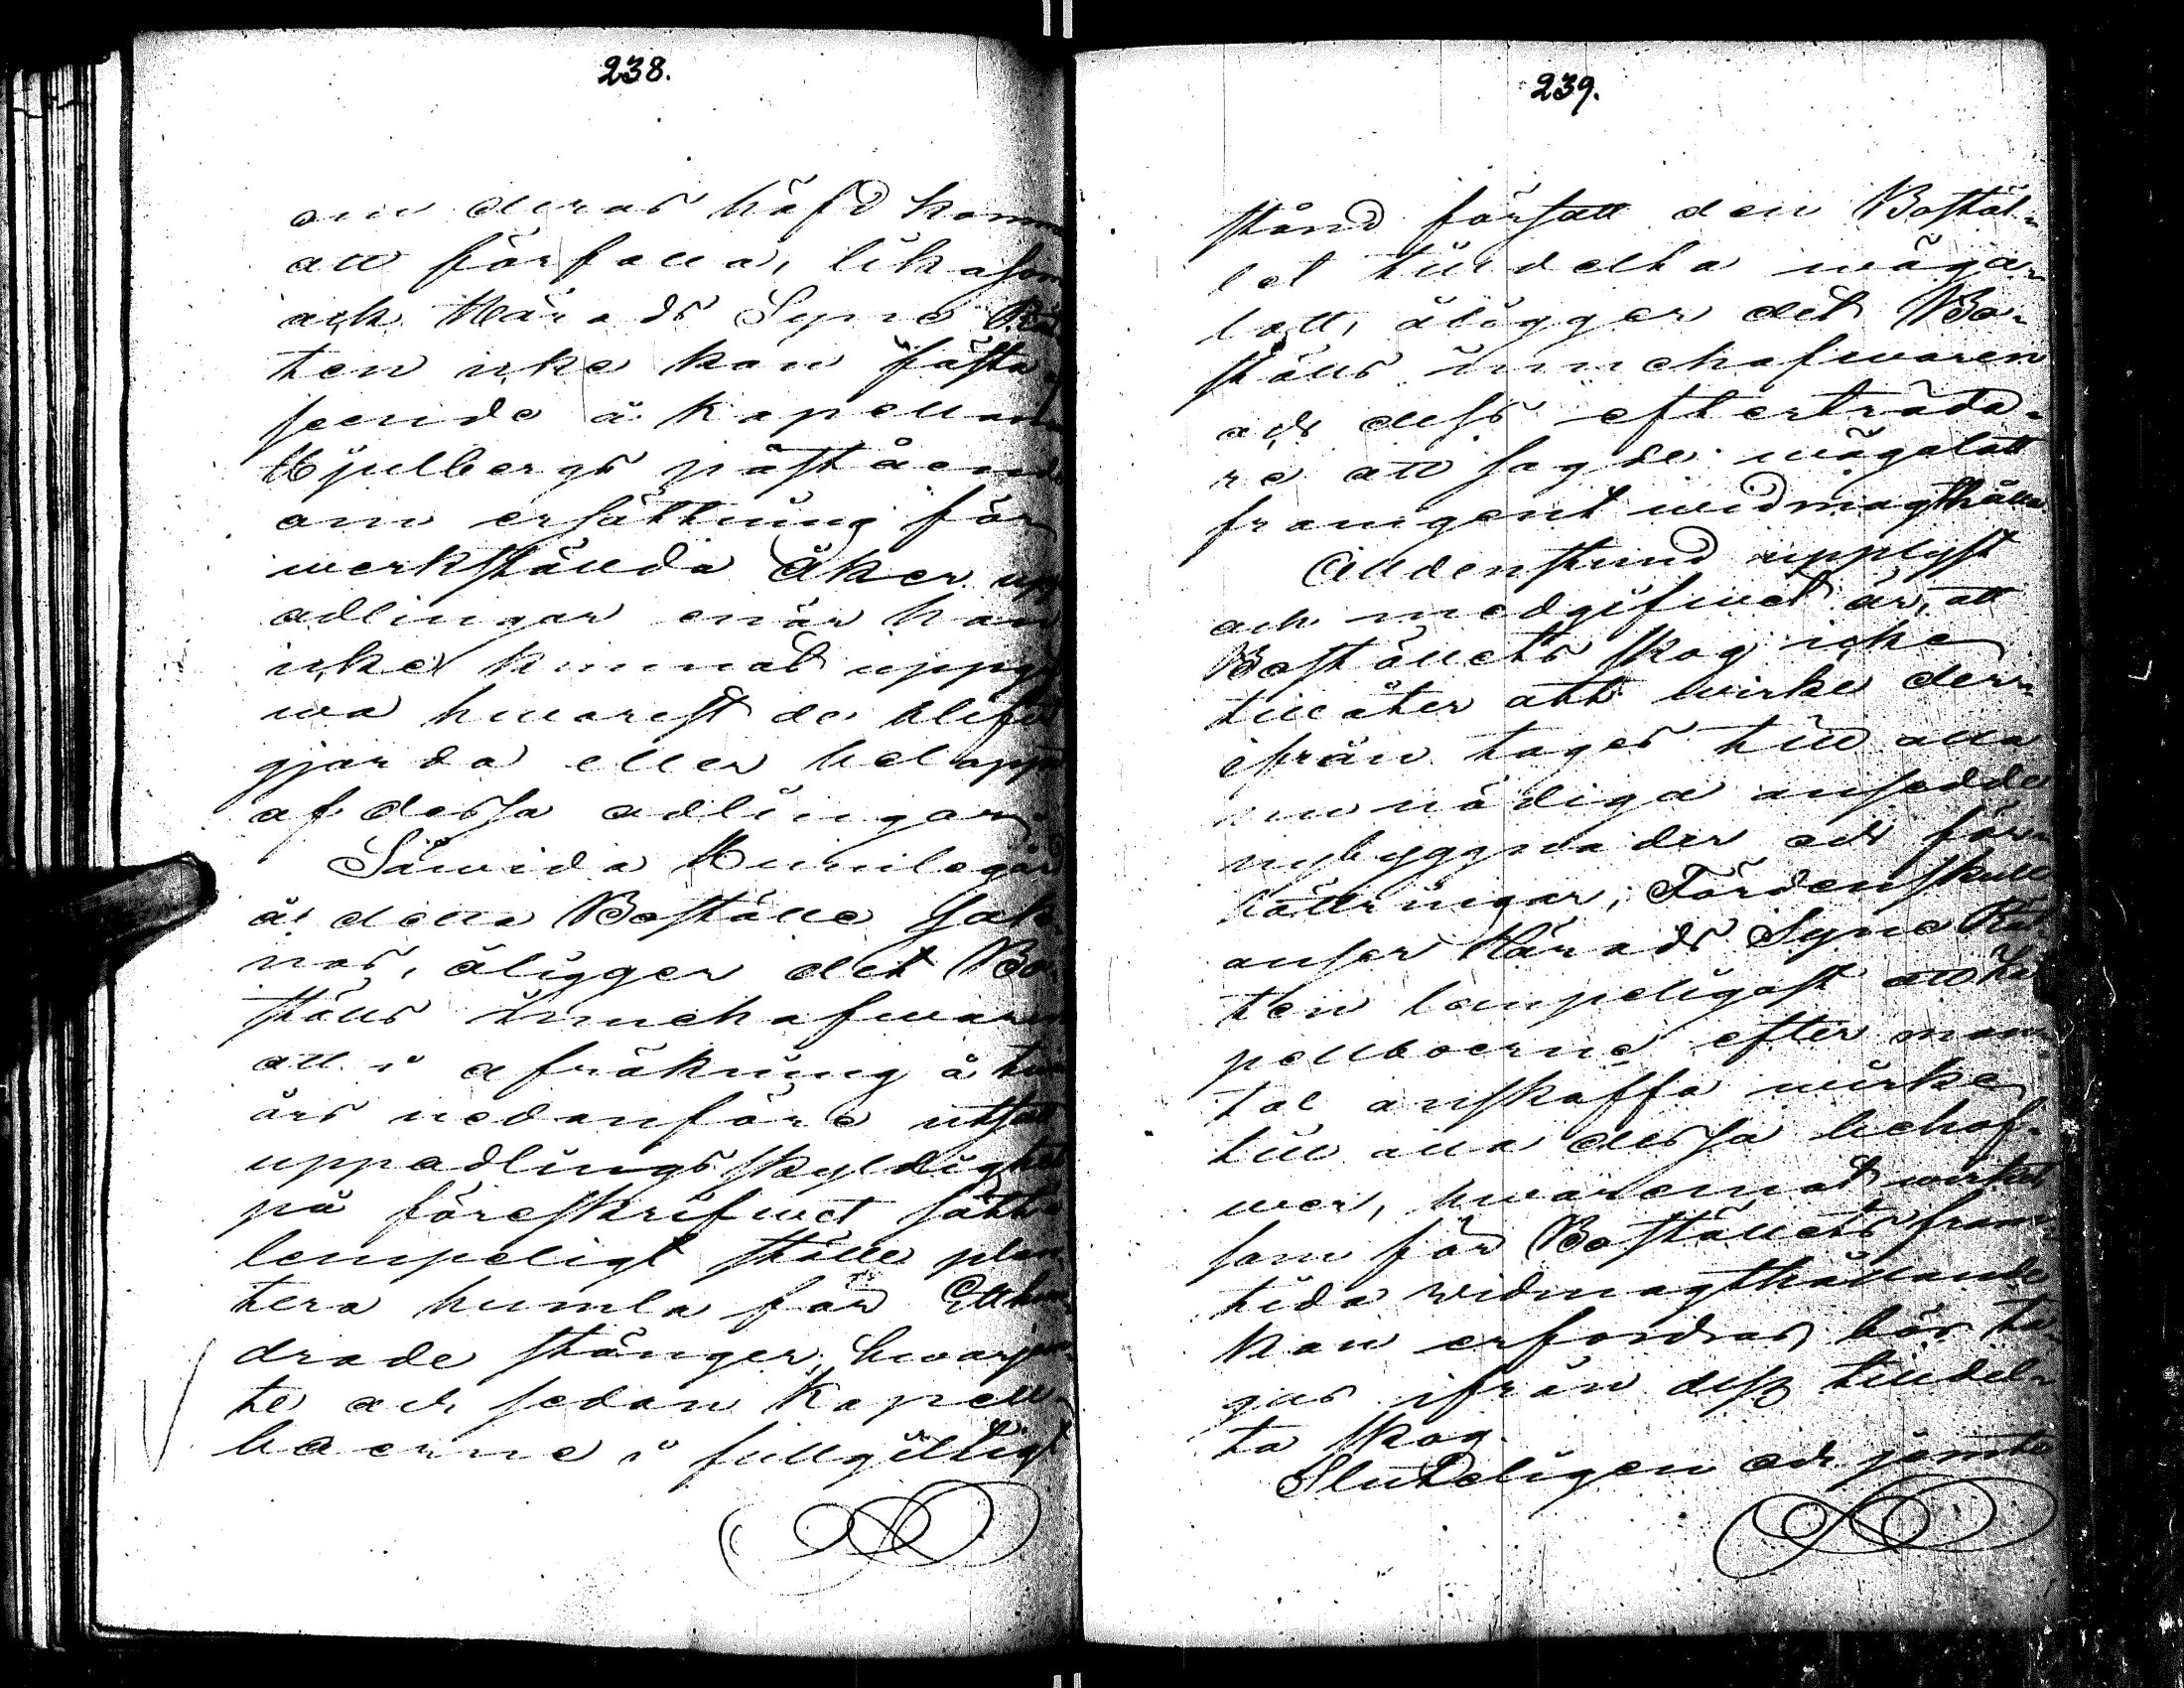 238.
om deras häfd komm
att förfalla, likasom
och Härads Syne Rä
ten icke kan fästa
seende å Kapellan
Hjulbergs påstående
om ersättning för
werkställda Åker upp
odlingar enär han
icke kunnat uppgi
wa hwarest de blifwit
gjorda eller beloppet
af dessa odlingar.
Såwida Humlegård
å detta Boställe sak
nas, åligger det Bo
ställs innehafwaren
att i afräkning å twå
års nedanföre utsatt
uppodlings skyldighet
på föreskrifwet sätt å
lempeligt ställe plan
tera humla för Etthun
drade stänger, hwarjem
te och sedan Kapell
boerne i fullgiltigt
239.
stånd försatt den Bostäl-
let tilldelta wäga-
lott, åligger det Bo-
ställs innehafwaren
och dess efterträda-
re att sagde wägalott
framgent widmagthålla.
Alldenstund upplyst
och medgifwet är, att
Boställets skog icke
tillåter att wirke der-
ifrån tages till alla
nu nödiga ansedda
nybyggnader och för-
bättringar; Fördenskull
anser Härads Syne Rät-
ten lämpeligast att Ka
pellboerne efter man-
tal anskaffa wirke
till alla dessa behof-
wer, hwaremot wirket
som för Boställets fram-
tida widmagthållande
kan erfordras bör ta-
gas ifrån dess tilldel-
ta skog.
Sluteligen och jemte